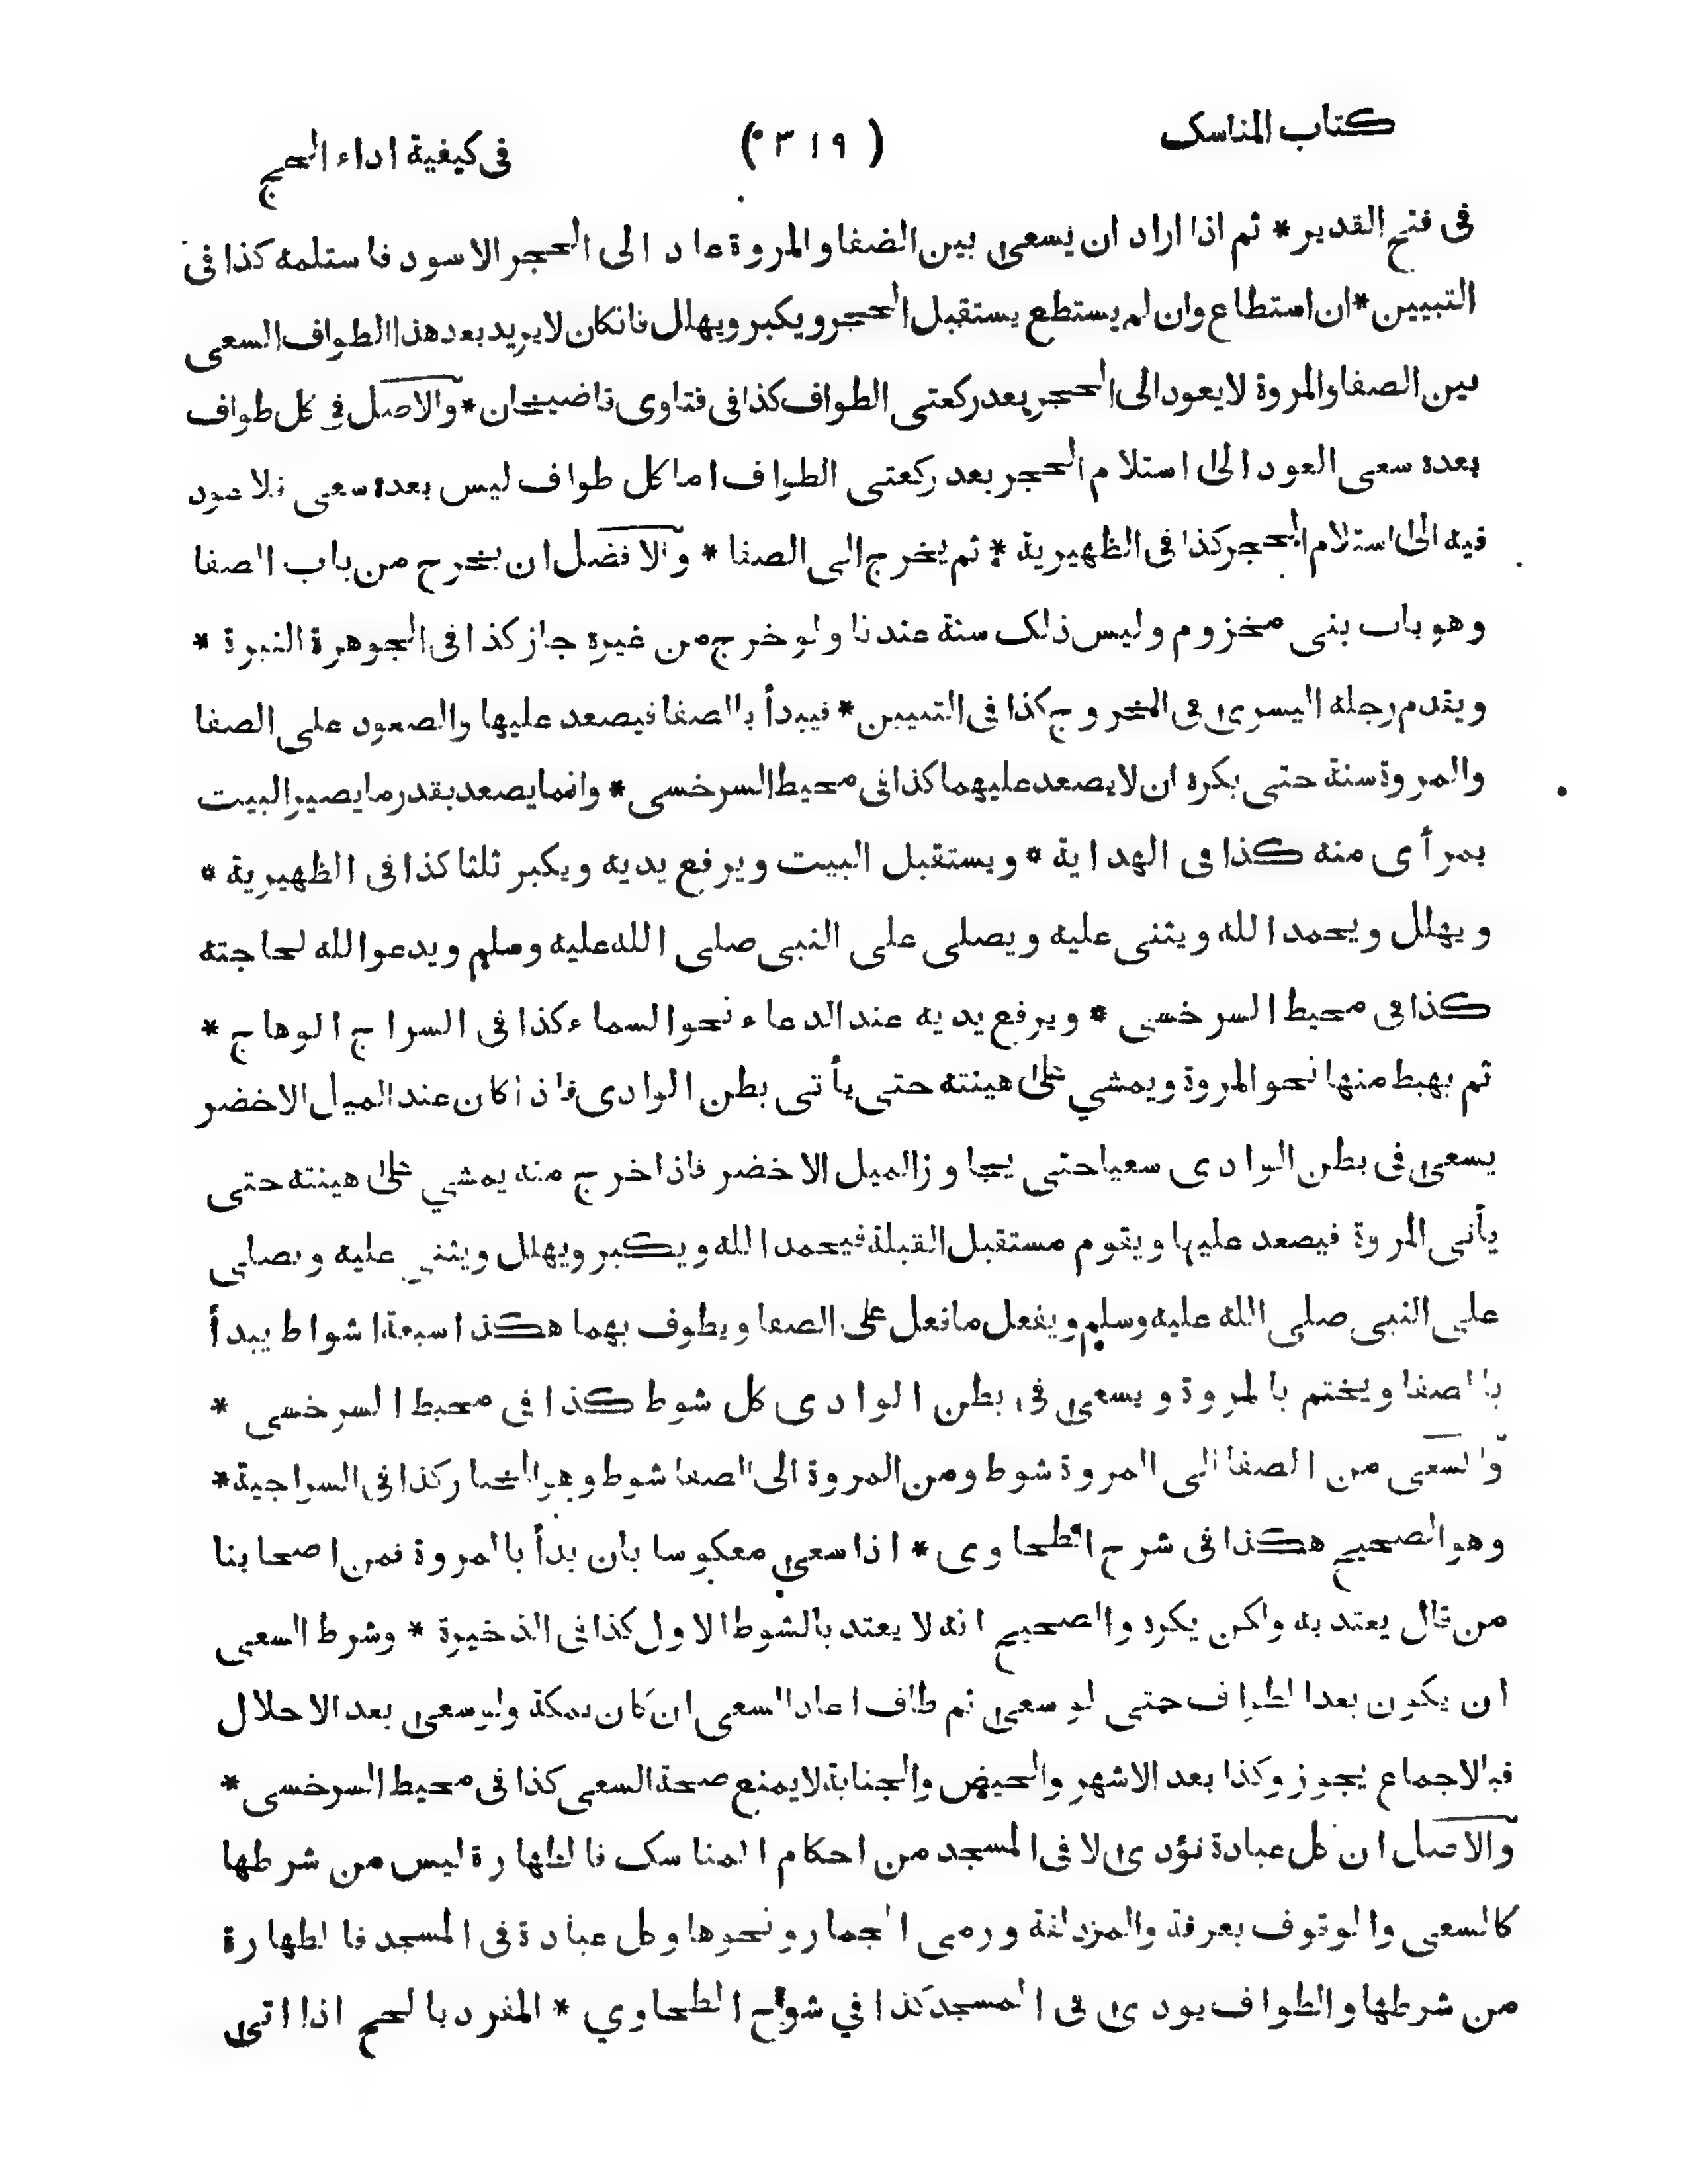 كتاب المناسك ( ٣١٩ ) فى كيفية اداء الحج
فى فتح القدير * ثم اذا اراد ان يسعى بين الضفا والمروة عاد الى الحجر الاسود فاستلمه كذا فى
التبيين * ان استطاع وان لم يستطع يستقبل الحجر ويكبر ويهلل فانكان لا يريد بعد هذا الطواف السعى
بين الصفا والمروة لا يعود الى الحجر بعد ركعتى الطواف كذا فى فتاوى قاضيخان * والاصل فى كل طواف
بعده سعى العود الى استلام الحجر بعد ركعتى الطواف اما كل طواف ليس بعده سعى فلا عود
فيه الى استلام الحجر كذا فى الظهيرية * ثم يخرج الى الصفا * والافضل ان يخرج من باب الصفا
وهو باب بنى مخزوم وليس ذلك سنة عندنا ولو خرج من غيره جاز كذا فى الجوهرة النيرة *
ويقدم رجله اليسرى فى الخروج كذا فى التبيين * فيبدأ بالصفا فيصعد عليها والصعود على الصفا
والمروة سنة حتى يكره ان لا يصعد عليهما كذا فى محيط السرخسى * وانما يصعد بقدر ما يصير البيت
بمرأى منه كذا فى الهداية * ويستقبل البيت ويرفع يديه ويكبر ثلثا كذا فى الظهيرية *
ويهلل ويحمد الله ويثنى عليه ويصلى على النبى صلى الله عليه وسلم ويدعو الله لحاجته
كذا فى محيط السرخسى * ويرفع يديه عند الدعاء نحو السماء كذا فى السراج الوهاج *
ثم يهبط منها نحو المروة ويمشي على هينته حتى يأتى بطن الوادى فاذا كان عند الميل الاخضر
يسعى فى بطن الوادى سعيا حتى يجاوز الميل الاخضر فاذا خرج منه يمشي على هينته حتى
يأتى المروة فيصعد عليها ويقوم مستقبل القبلة فيحمد الله ويكبر ويهلل ويثنى عليه ويصلى
على النبى صلى الله عليه وسلم ويفعل ما فعل على الصفا ويطوف بهما هكذا سبعة اشواط يبدأ
بالصفا ويختم بالمروة ويسعى فى بطن الوادى كل شوط كذا فى محيط السرخسى *
والسعى من الصفا الى المروة شوط ومن المروة الى الصفا شوط وهو المختار كذا فى السراجية *
وهو الصحيح هكذا فى شرح الطحاوى * اذا سعى معكوسا بان بدأ بالمروة فمن اصحابنا
من قال يعتد به ولكن يكره والصحيح انه لا يعتد بالشوط الاول كذا فى الذخيرة * وشرط السعى
ان يكون بعد الطواف حتى لو سعى ثم طاف اعاد السعى ان كان بمكة ولو سعى بعد الاحلال
فبالاجماع يجوز وكذا بعد الاشهر والحيض والجنابة لا يمنع صحة السعى كذا فى محيط السرخسى *
والاصل ان كل عبادة تؤدى لا فى المسجد من احكام المناسك فالطهارة ليس من شرطها
كالسعى والوقوف بعرفة والمزدلفة ورمى الجمار ونحوها وكل عبادة فى المسجد فالطهارة
من شرطها والطواف يودى فى المسجد كذا في شرح الطحاوي * المفرد بالحج اذا اتى